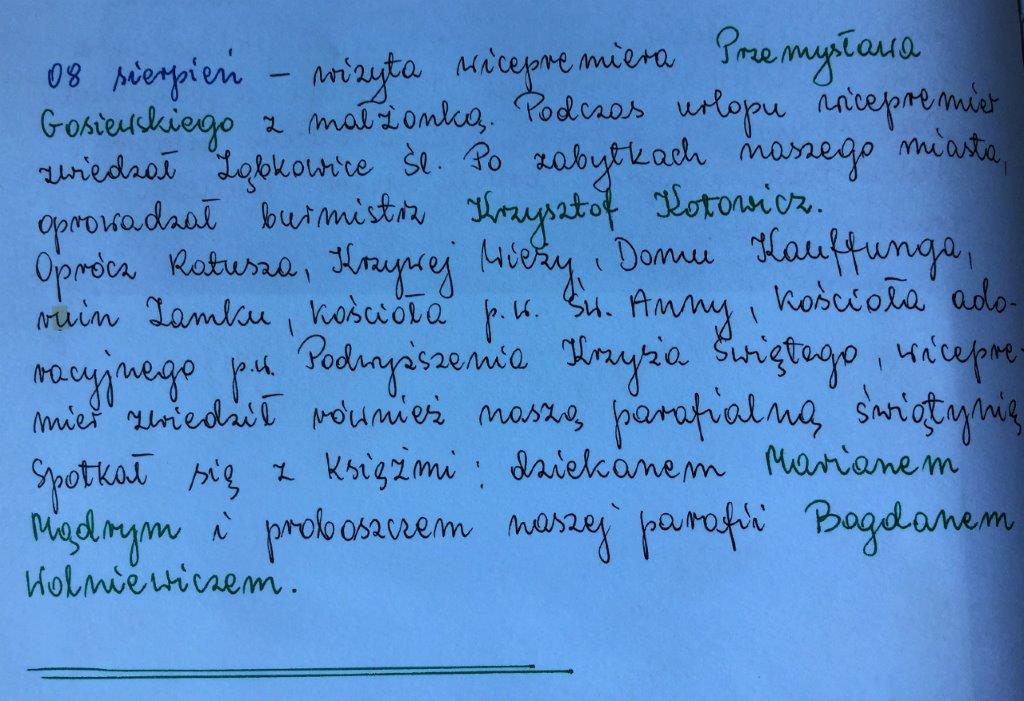 08 sierpień – wizyta wicepremiera Przemysława
Gosiewskiego z małżonką. Podczas urlopu wicepremier
zwiedzał Ząbkowice Śl. Po zabytkach naszego miasta,
oprowadzał burmistrz Krzysztof Kotowicz.
Oprócz Ratusza, Krzywej Wieży, Domu Kauffunga,
ruin Zamku, kościoła p.w. św. Anny, kościoła ado-
racyjnego p.w. Podwyższenia Krzyża Świętego, wicepre-
mier zwiedził również naszą parafialną świątynię
Spotkał się z księżmi: dziekanem Marianem
Mądrym i proboszczem naszej parafii Bogdanem
Wolniewiczem.